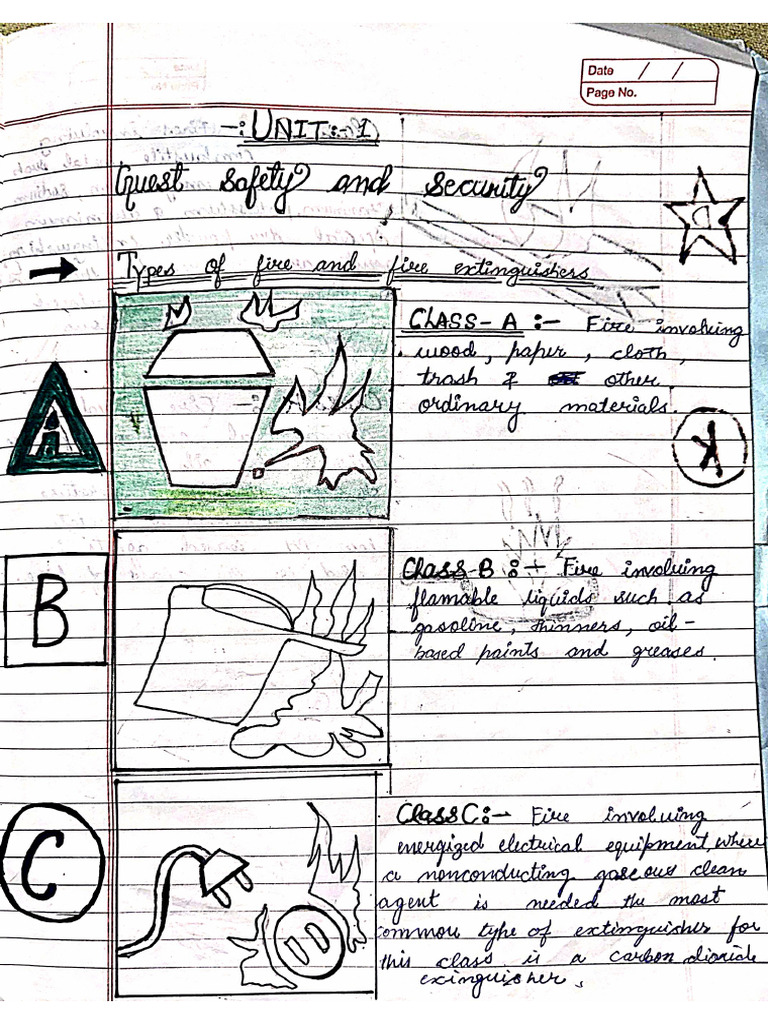 Date / /
Page No.
-: UNIT :- 1
Guest safety and security
→ Types of fire and fire extinguishers
CLASS - A :- Fire involving
wood, paper, cloth,
trash & other
ordinary materials.
B
Class-B :- Fire involving
flamable liquids such as
gasoline, thinners, oil-
based paints and greases.
C
Class C:- Fire involving
energized electrical equipment, where
a nonconducting gaseous clean
agent is needed the most
common type of extinguisher for
this class is a carbon dioxide
exinguisher.